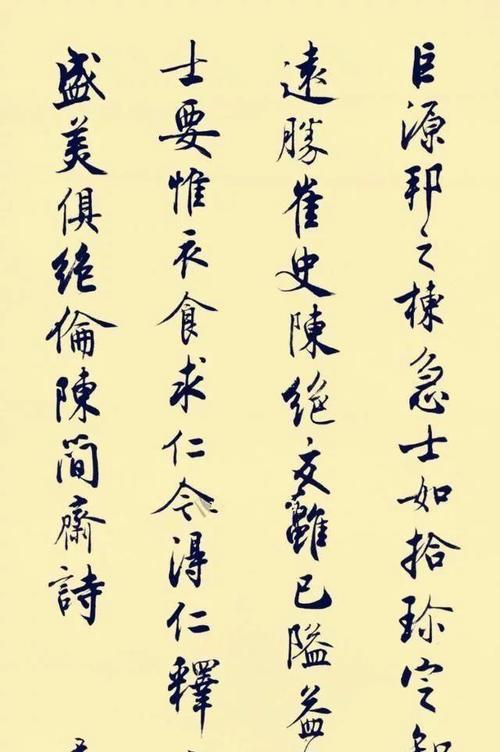 巨源邦之棟急士如拾珍定知
遠勝崔史陳絕交雖已隘益
士要惟衣食求仁今得仁釋
盛美俱絕倫陳簡齋詩